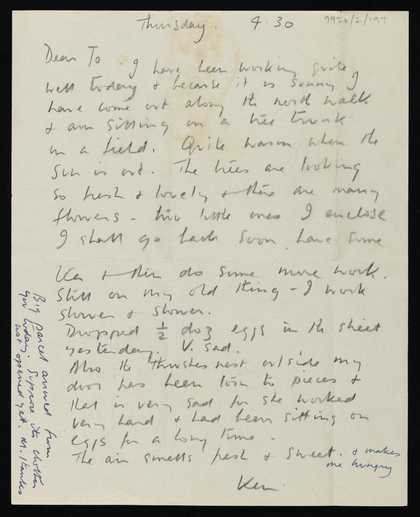 Thursday. 4.30
7920/2/197
Dear To I have been working quite
well today & because it is sunny I
have come out along the north walk
& am sitting on a tree trunk
in a field. Quite warm when the
sun is out. The trees are looking
so fresh & lovely & there are many
flowers - two little ones I enclose
I shall go back soon, have some
tea & then do some more work.
Still on my old thing - I work
slower & slower.
Dropped ½ doz eggs in the street
yesterday. V. sad.
Also the thrushes nest outside my
door has been torn to pieces &
that is very sad for she worked
very hard & had been sitting on
eggs for a long time.
The air smells fresh & sweet. & makes
me hungry
Ken
Big parcel arrived from
you today. Suppose its clothes
not opened yet. M. thanks